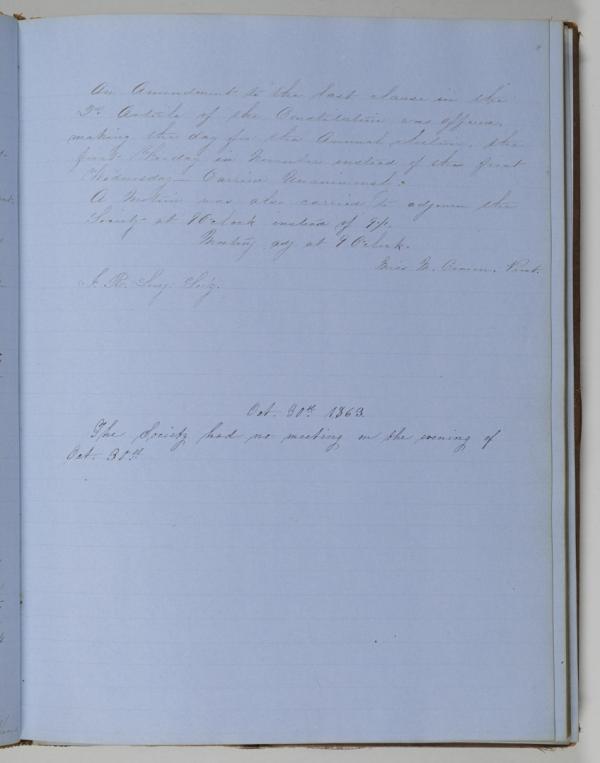 An Amendment to the last clause in the
Article of the Constitution was offered
making the day for the Annual election, the
first Friday in November instead of the first
Wednesday — Carried Unanimously.
A Motion was also carried to adjourn the
Society at 9 Oclock instead of 9½.
Meeting adj at 9 Oclock.
Miss M. Prest.
J. R. Secy.
Oct. 30th 1863
The Society had no meeting on the evening of
Oct. 30th